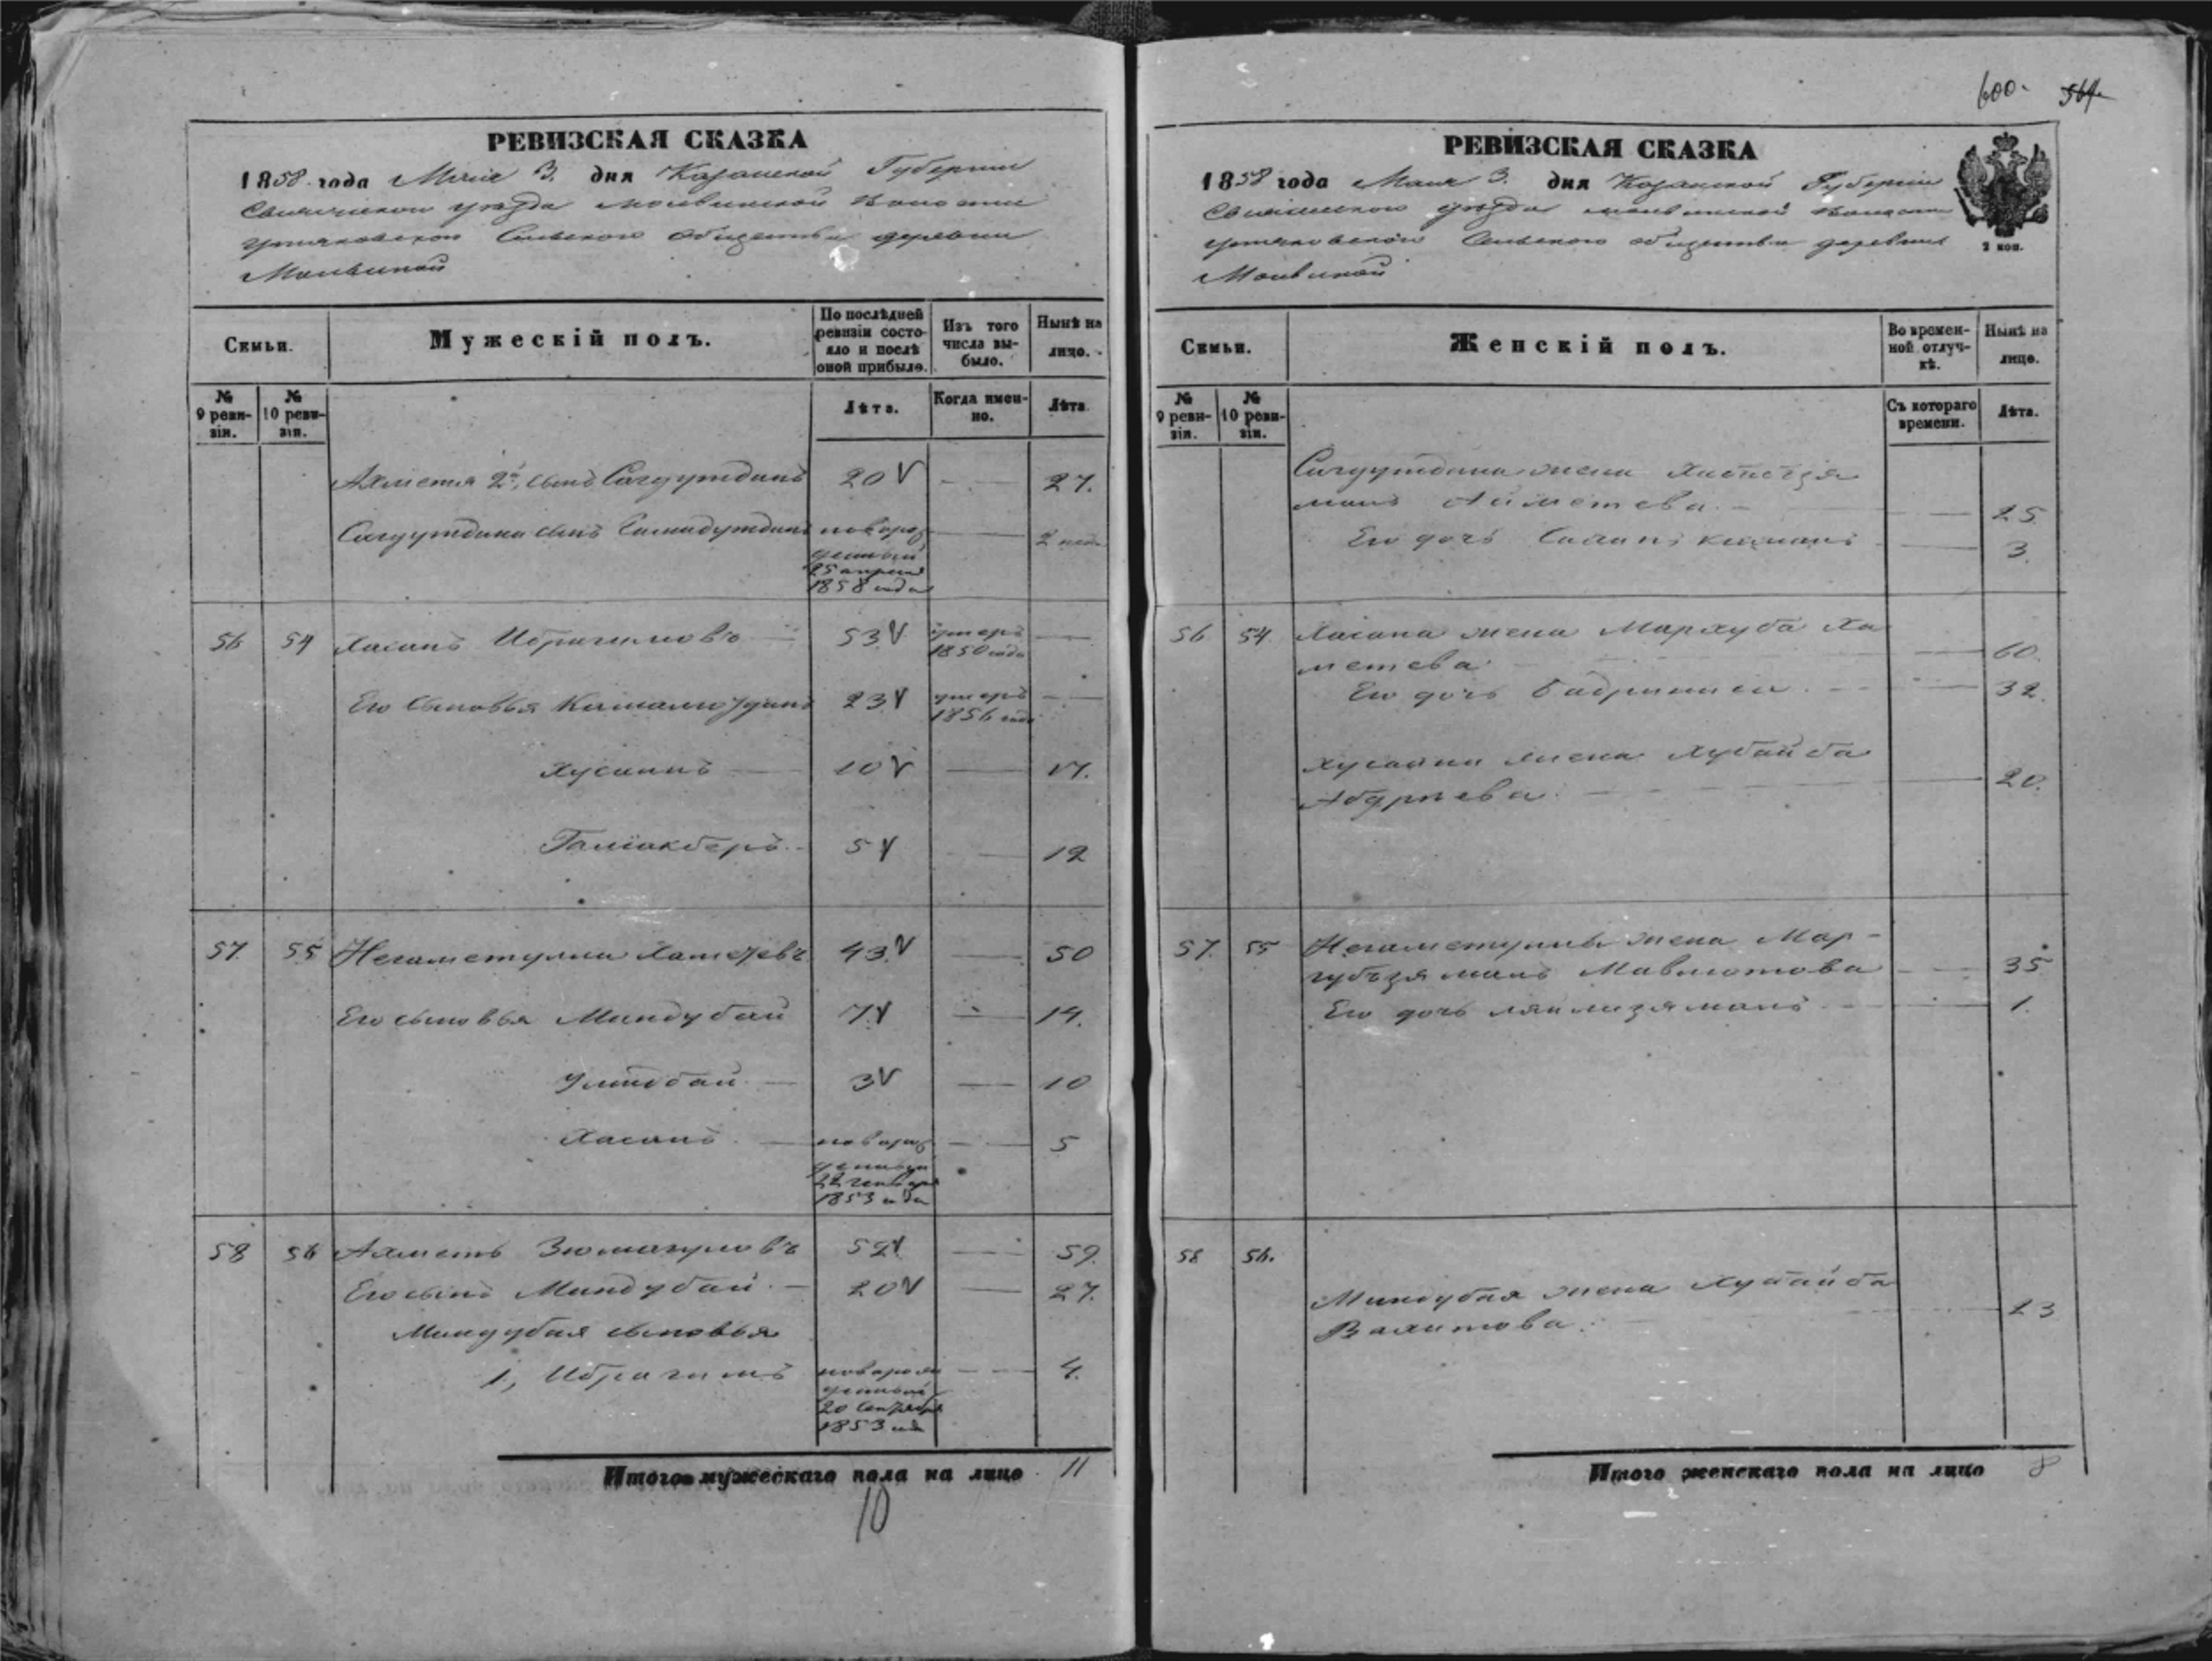 600. 564
РЕВИЗСКАЯ СКАЗКА
1858 года Маія 3. дня Казанской Губерніи
уѣзда Моlвинской Волости
Сельскаго общества деревни
Молвиной
Семьи.
Мужескій полъ.
По послѣдней ревизіи состояло и послѣ оной прибыло.
Изъ того числа выбыло.
Нынѣ на лицо.
№ 9 ревизіи.
№ 10 ревизіи.
Лѣта.
Когда именно.
Лѣта.
Ахметя 2й, сынъ Сагдутдинъ 20 27.
Сагдутдина сынъ новорожденный 25 апреля 1858 года 2 нед.
56 54 Хасанъ Ибрагимовъ 53 умеръ 1850 года
Его сыновья 23 умеръ 1856 года
Хусаинъ 10 17.
Галіакберъ 5 12
57. 55 Негаметулла 43 50
Его сыновья Миндубай 7 14.
3 10
Хасанъ новорожденный 22 генваря 1853 года 5
58 56 Ахметь Зюмагуловъ 52 59.
Его сынъ Миндубай 20 27.
Миндубая сыновья
1, Ибрагимъ новорожденный 20 Сентября 1853 года 4.
Итого мужескаго пола на лицо 11
10
РЕВИЗСКАЯ СКАЗКА
1858 года Маія 3. дня Казанской Губерніи
уѣзда Молвинской Волости
Сельскаго общества деревни
Молвиной
2 коп.
Семьи.
Женскій полъ.
Во временной отлучкѣ.
Нынѣ на лицо.
№ 9 ревизіи.
№ 10 ревизіи.
Съ котораго времени.
Лѣта.
Сагдутдина жена
Ахметева 25
Его дочь 3.
56 54 Хасана жена Мархуба Ха
метева 60.
Его дочь Бадриниса 32.
Хусаина жена Хубайба
20.
57. 55 Негаметуллы жена Мар-
губзяманъ Мавлютова 35
Его дочь Ляйлизяманъ 1.
58 56.
Миндубая жена Хубайба
Валитова. 23
Итого женскаго пола на лицо 8